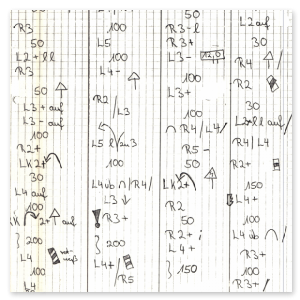 R3
50
L2+ll
R3
50
L3+ auf
L3- auf
100
R2+
LK2+
30
L4 auf
100
2+ auf
200
L4
100
L4
100
L5
100
L4-
R2
/L3
L5 ll/zu3
100
L4üb ∩/R4/
L3
R3+
200
L4+/
R5
50
R3-ll
R3+
L3- 12,0
100
L3+
100
∩ R4/L4/
R5-
50
LK2+
R2
50
R2+ i
L4+
150
L2 auf
30
R4 /
R2
100
L3+ll auf/
R4/L4
R2+
150
L4+
100
L4üb ∩/
R3+
100
R3+/